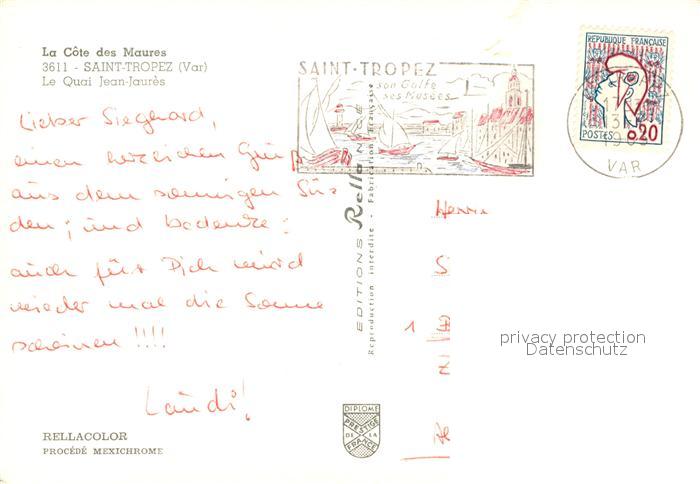 La Côte des Maures
3611 - SAINT-TROPEZ (Var)
Le Quai Jean-Jaurès
Lieber Sieghard,
einen herzlichen Gruß
aus dem sonnigen Sü-
den; und bedenke:
auch für Dich wird
wieder mal die Sonne
scheinen !!!!
RELLACOLOR
PROCÉDÉ MEXICHROME
SAINT-TROPEZ
son Golfe
ses Musées
REPUBLIQUE FRANÇAISE
POSTES
0,20
13
VAR
EDITIONS Rella NICE
Reproduction interdite - Fabrication Française
Herrn
S
1
privacy protection
Datenschutz
DIPLOME
PRESTIGE
DE LA
FRANCE